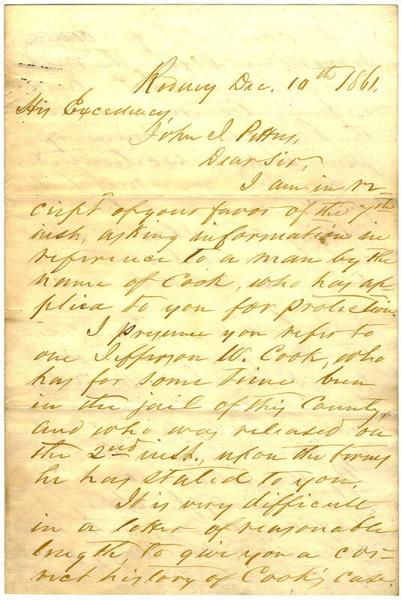 Rodney Dec. 10th 1861.
His Excellency,
John J. Pettus,
Dear Sir,
I am in re-
ceipt of your favor of the 7th
inst, asking information in
reference to a man by the
name of Cook, who has ap-
plied to you for protection.
I presume you refer to
one Jefferson W. Cook, who
has for some time been
in the jail of this County,
and who was released on
the 2nd inst., upon the terms
he has stated to you.
It is very difficult
in a letter of reasonable
length, to give you a cor-
rect history of Cook's case.